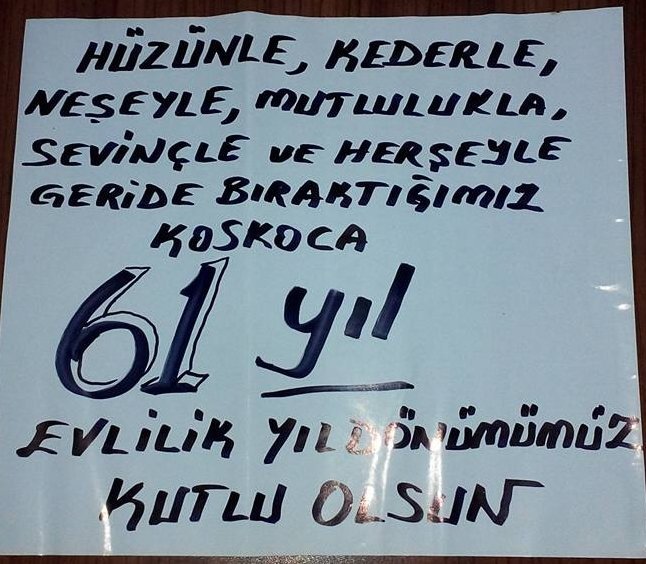 HÜZÜNLE, KEDERLE,
NEŞEYLE, MUTLULUKLA,
SEVİNÇLE VE HERŞEYLE
GERİDE BIRAKTIĞIMIZ
KOSKOCA
61 yıl
EVLİLİK YILDÖNÜMÜMÜZ
KUTLU OLSUN